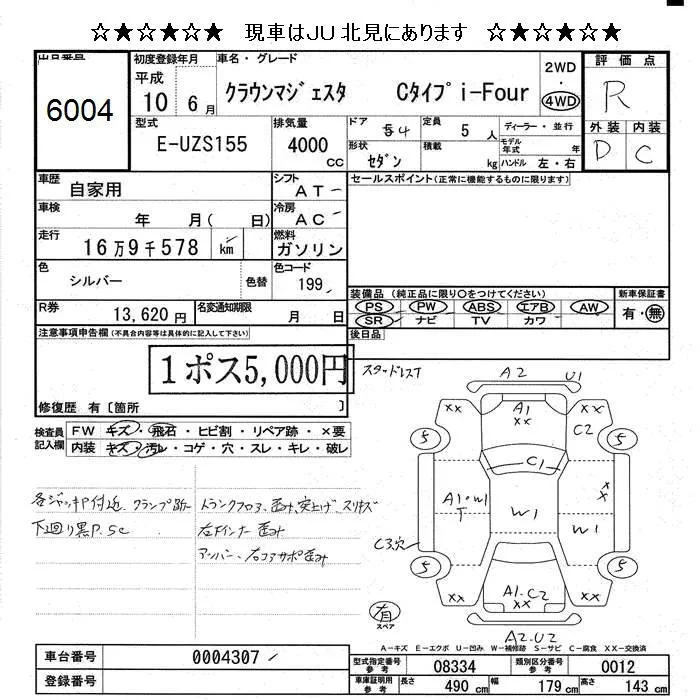 ☆★☆★☆★ 現車はJU北見にあります ☆★☆★☆★
出品番号
6004
初度登録年月
平成
10 6月
車名・グレード
クラウンマジェスタ Cタイプi-Four
2WD
・
4WD
評価点
R
外装 内装
D C
型式
E-UZS155
排気量
4000
CC
ドア
54
形状
セダン
定員
5人
積載
kg
ディーラー・並行
モデル年式 年
ハンドル 左・右
車歴
自家用
シフト
AT
車検
年 月( 日)
冷房
AC
走行
16万9千578 km
燃料
ガソリン
色
シルバー
色替
色コード
199
R券
13,620円
名変通知期限
月 日
セールスポイント(正常に機能するものに限ります)
装備品(純正品に限り○をつけてください)
PS PW ABS エアB AW
SR ナビ TV カワ
新車保証書
有・無
後日品
スタッドレスT
注意事項申告欄(不具合内容等は具体的に記入して下さい)
1ポス5,000円
修復歴 有〔箇所 〕
検査員
記入欄
FW キズ・飛石・ヒビ割・リペア跡・×要
内装 キズ・汚レ・コゲ・穴・スレ・キレ・破レ
各ジャッキP付近、クランプ跡
下廻り黒P.SC
トランクフロア、歪み、突上げ、スリキズ
左下インナー歪み
右コアサポ歪み
A2 U1
XX A1 XX XX
C2
5 5
C1
XX
A1・W1
T
W1 W1
C3穴
5 5
XX A1・C2 XX XX
有
スペア
A2・U2
A-キズ E-エクボ U-凹み W-補修跡 S-サビ C-腐食 XX-交換済
車台番号
0004307
登録番号
型式指定番号
参考
08334
類別区分番号
参考
0012
車庫証明用
参考
長さ 490 cm 幅 179 cm 高さ 143 cm